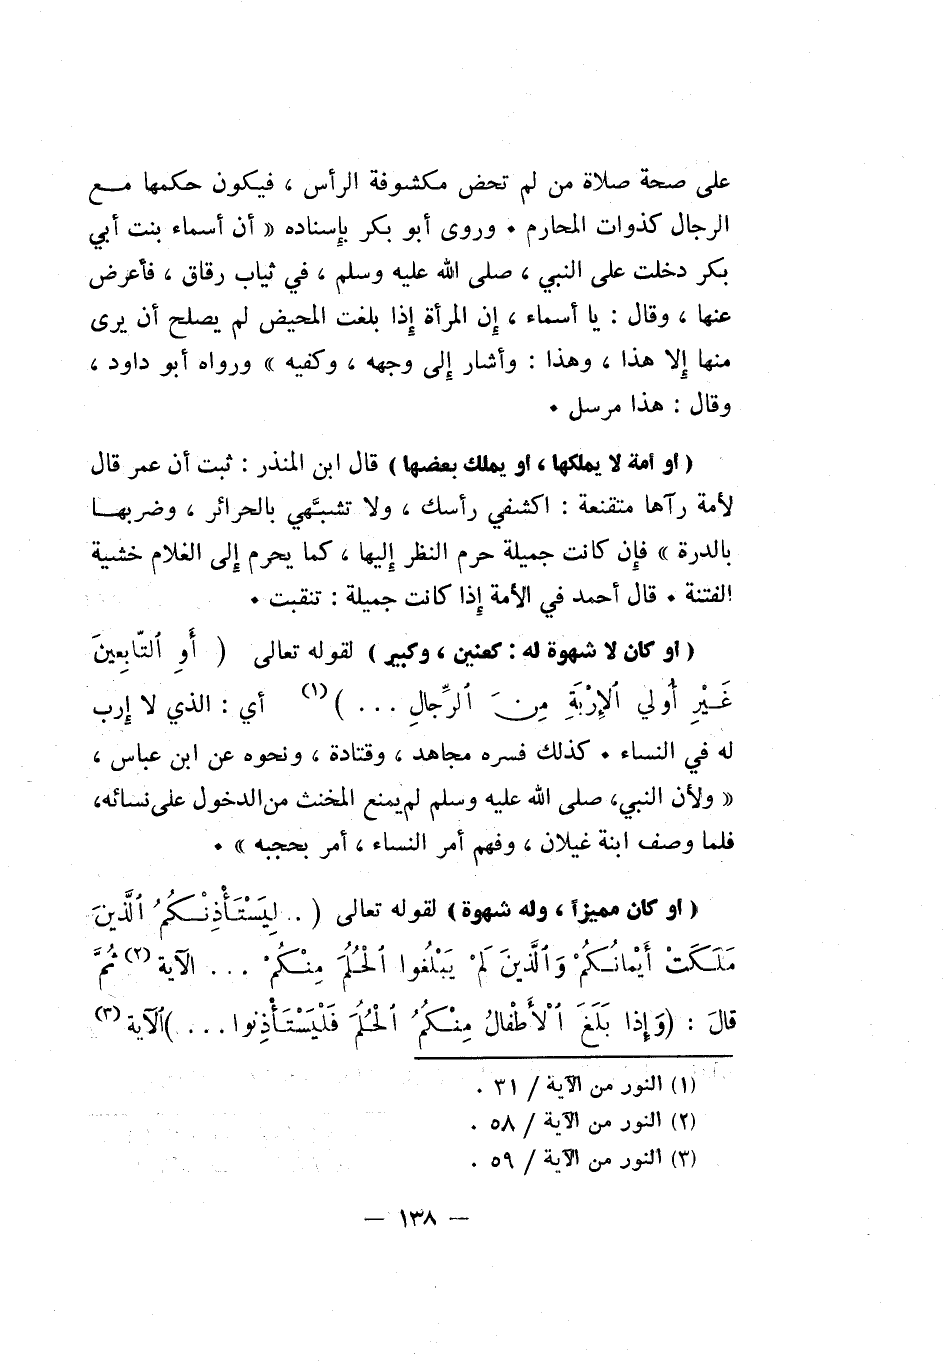 على صحة صلاة من لم تحض مكشوفة الرأس ، فيكون حكمها مـــع
الرجال كذوات المحارم • وروى أبو بكر بإسناده « أن أسماء بنت أبي
بكر دخلت على النبي ، صلى الله عليه وسلم ، في ثياب رقاق ، فأعرض
عنها ، وقال : يا أسماء ، إن المرأة إذا بلغت المحيض لم يصلح أن يرى
منها إلا هذا ، وهذا : وأشار إلى وجهه ، وكفيه » ورواه أبو داود ،
وقال : هذا مرسل •
( أو أمة لا يملكها ، أو يملك بعضها ) قال ابن المنذر : ثبت أن عمر قال
لأمة رآها متقنعة : اكشفي رأسك ، ولا تشبَّهي بالحرائر ، وضربهـــا
بالدرة » فإن كانت جميلة حرم النظر إليها ، كما يحرم إلى الغلام خشية
الفتنة • قال أحمد في الأمة إذا كانت جميلة : تنقبت •
( أو كان لا شهوة له : كعنين ، وكبير ) لقوله تعالى ( أَوِ ٱلتَّابِعِينَ
غَيْرِ أُولِي ٱلْإِرْبَةِ مِنَ ٱلرِّجَالِ ... )(١) أي : الذي لا إرب
له في النساء • كذلك فسره مجاهد ، وقتادة ، ونحوه عن ابن عباس ،
« ولأن النبي، صلى الله عليه وسلم لم يمنع المخنث من الدخول على نسائه،
فلما وصف ابنة غيلان ، وفهم أمر النساء ، أمر بحجبه » •
( أو كان مميزاً ، وله شهوة ) لقوله تعالى ( .. لِيَسْتَأْذِنْكُمُ ٱلَّذِينَ
مَلَكَتْ أَيْمَانُكُمْ وَٱلَّذِينَ لَمْ يَبْلُغُوا ٱلْحُلُمَ مِنْكُمْ ... الآية (٢) ثُمَّ
قالَ : (وَإِذا بَلَغَ ٱلْأَطْفالُ مِنْكُمُ ٱلْحُلُمَ فَلْيَسْتَأْذِنُوا ... )ٱلآية (٣)
(١) النور من الآية / ٣١ .
(٢) النور من الآية / ٥٨ .
(٣) النور من الآية / ٥٩ .
— ١٣٨ —